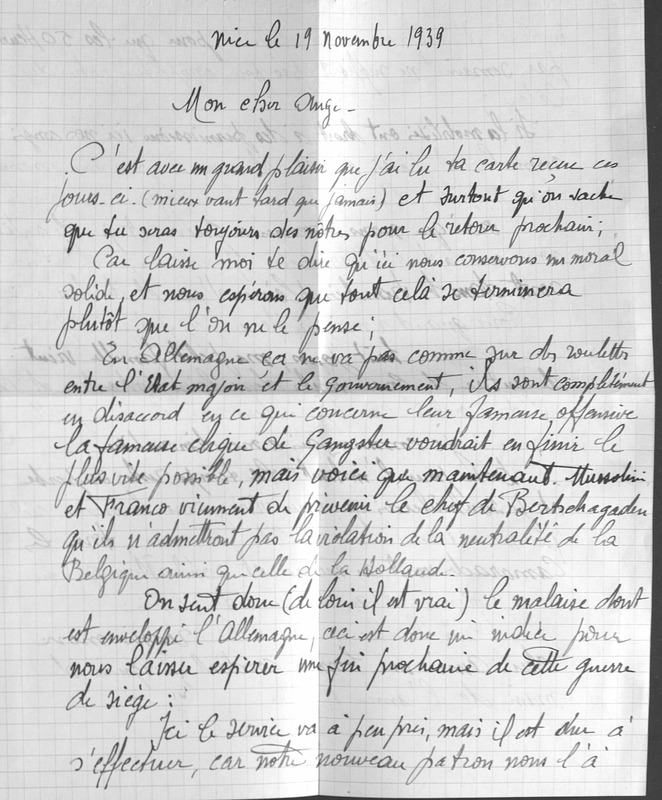 Nice le 19 novembre 1939
Mon cher Ange -
C'est avec un grand plaisir que j'ai lu ta carte reçue ces
jours-ci. (mieux vaut tard que jamais) et surtout qu'on sache
que tu seras toujours des nôtres pour le retour prochain;
Car laisse moi te dire qu'ici nous conservons un moral
solide, et nous espérons que tout celà se terminera
plutôt que l'on ne le pense;
En Allemagne ça ne va pas comme sur des roulettes
entre l'Etat major et le Gouvernement, ils sont complètement
en désaccord en ce qui concerne leur fameuse offensive
la fameuse clique de Gangster voudrait en finir le
plus vite possible, mais voici que maintenant. Mussolini
et Franco viennent de prévenir le chef de Bertschagaden
qu'ils n'admettront pas la violation de la neutralité de la
Belgique ainsi que celle de la Hollande.
On sent donc (de loin il est vrai) le malaise dont
est enveloppé l'Allemagne, ceci est donc un indice pour
nous laisser espérer une fin prochaine de cette guerre
de siège:
Ici le service va à peu près, mais il est dur à
s'effectuer, car notre nouveau patron nous l'à